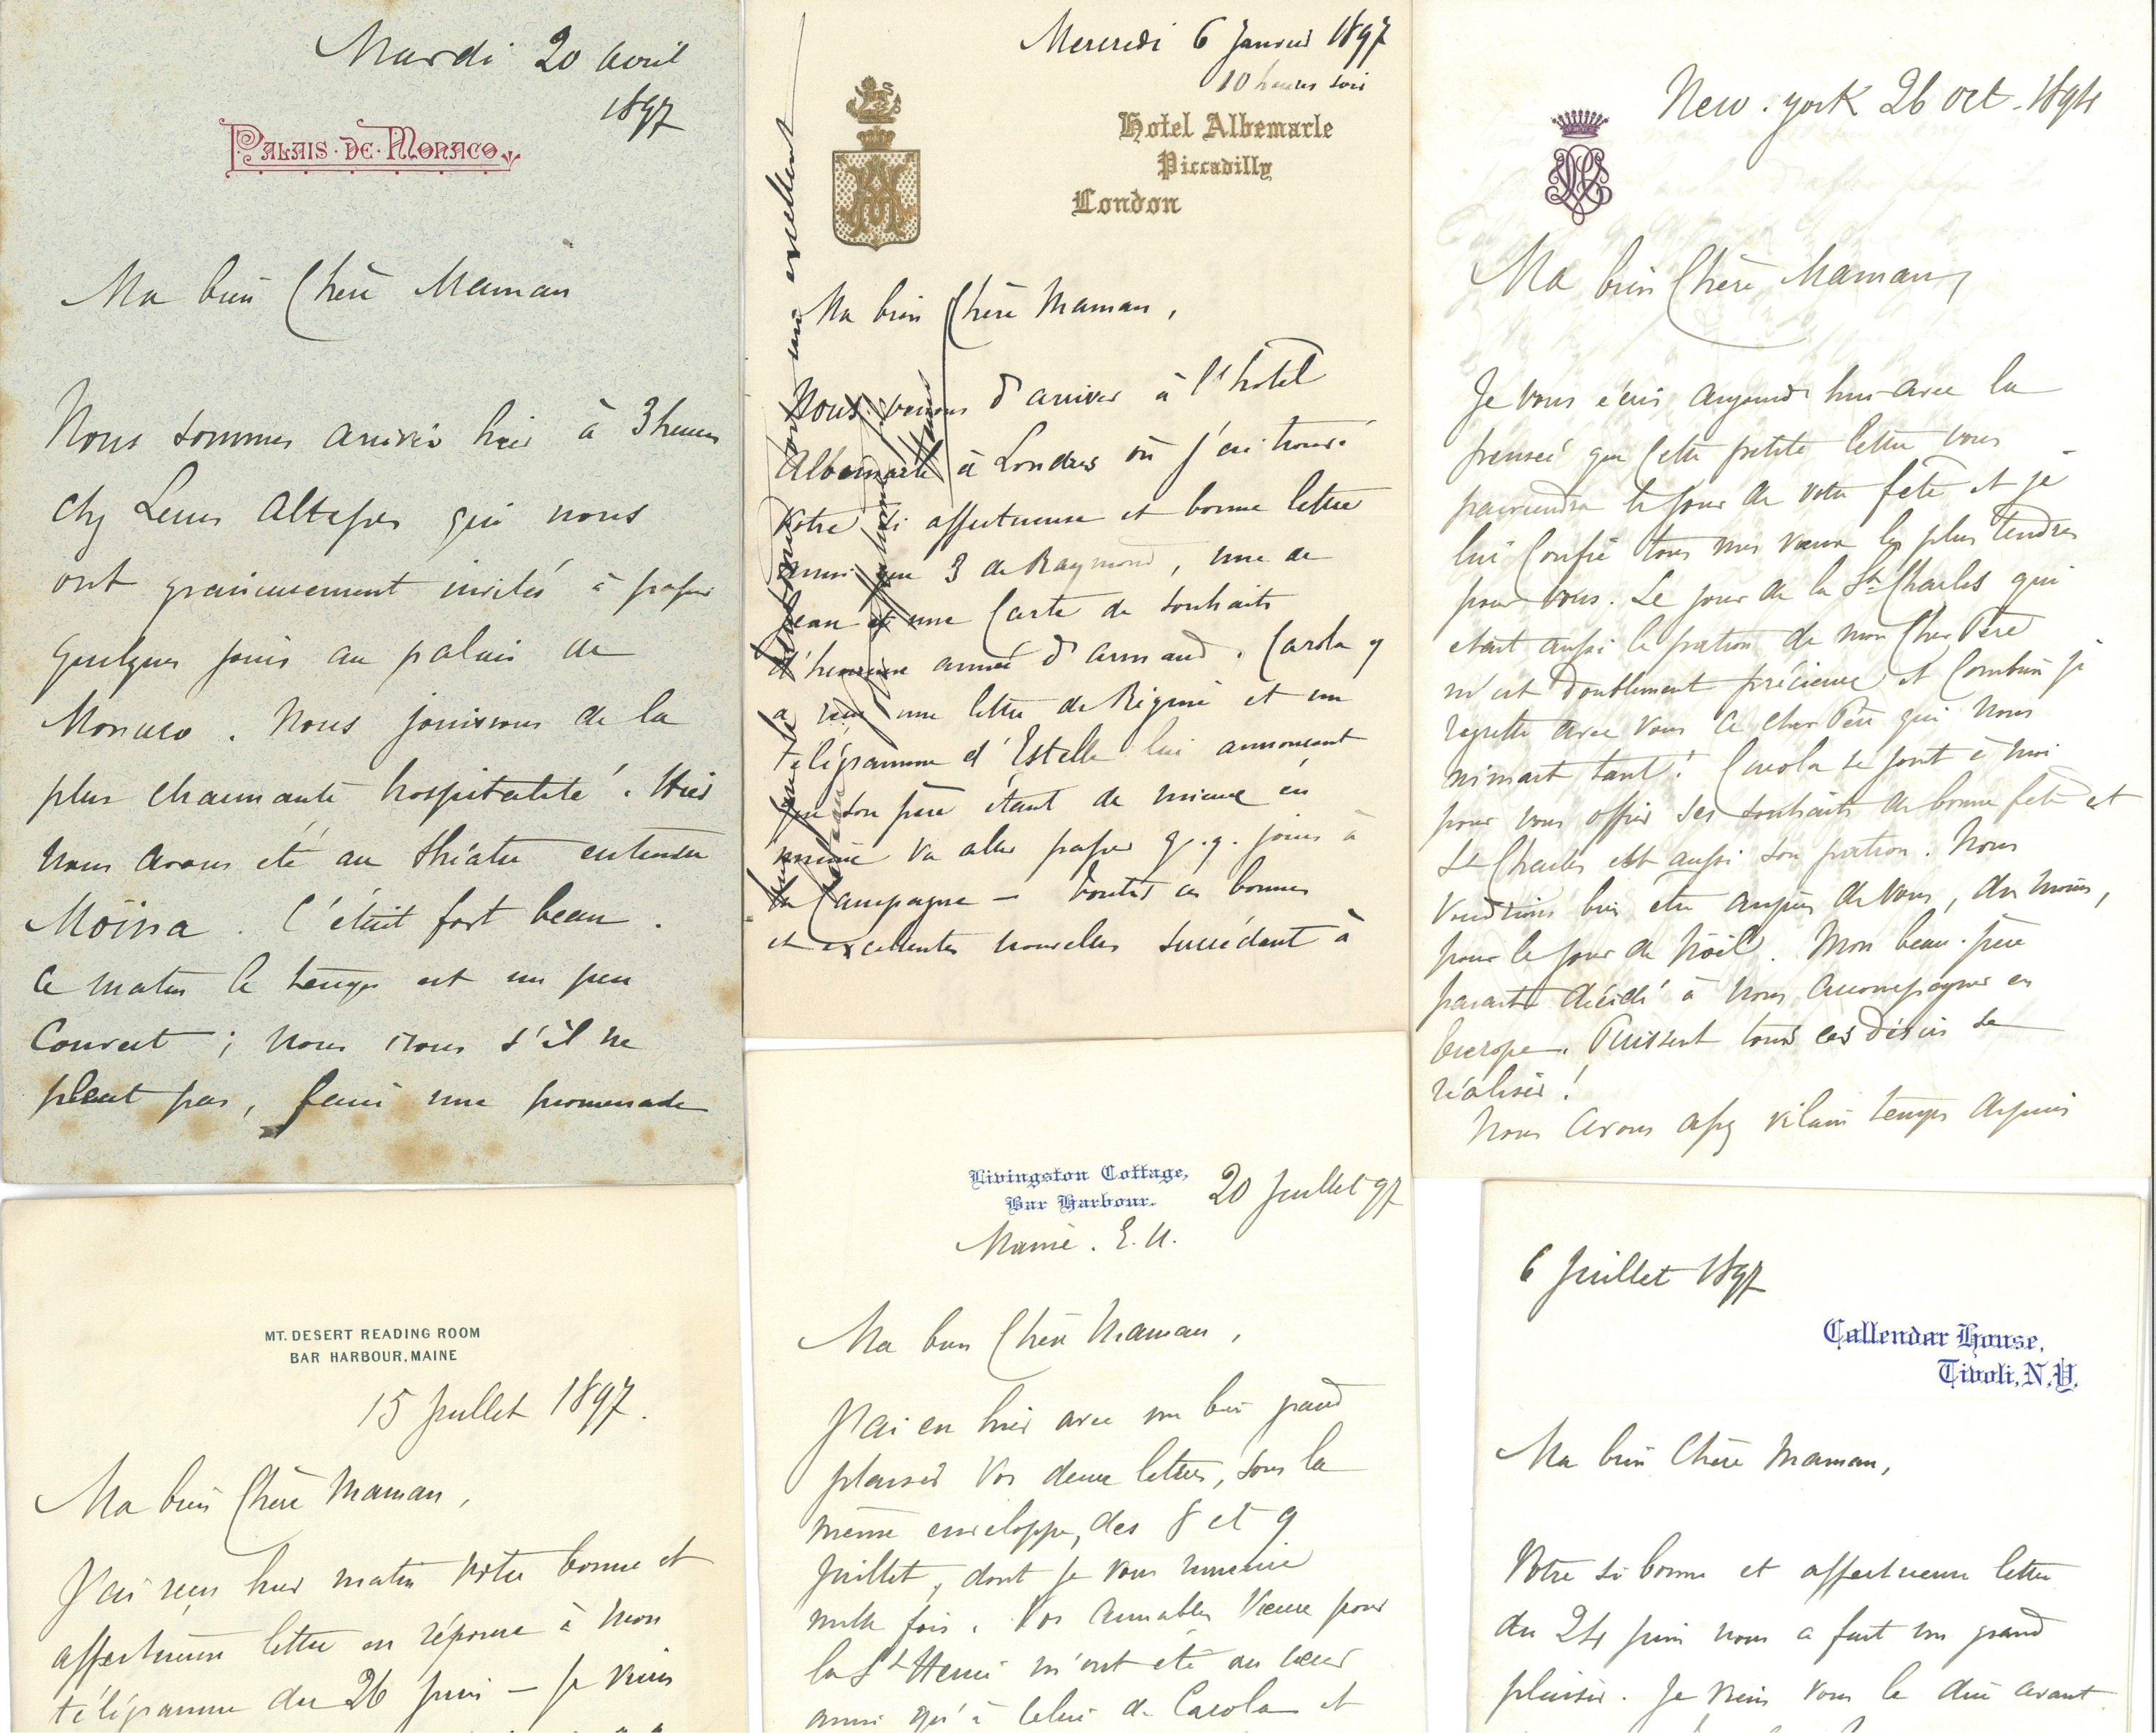 Mardi 20 avril
1897
PALAIS · DE · MONACO
Ma bien Chère Maman
Nous sommes arrivés hier à 3 heures
chez Leurs Altesses qui nous
ont gracieusement invités à passer
quelques jours au palais de
Monaco. Nous jouissons de la
plus charmante hospitalité. Hier
nous avons été au théatre entendre
Moïna. C'était fort beau.
Ce matin le temps est un peu
couvert ; nous irons s'il ne
pleut pas, faire une promenade
Mercredi 6 Janvier 1897
10 heures soir
Hotel Albemarle
Piccadilly
London
Ma bien Chère Maman,
Nous venons d'arriver à l'hôtel
Albemarle à Londres où j'ai trouvé
Votre si affectueuse et bonne lettre
ainsi que 3 de Raymond, une de
Jean et une Carte de souhaits
d'heureuse année d'Armand. Carola y
a reçu une lettre de Régine et un
télégramme d'Estelle lui annonçant
que son père étant de mieux en
mieux va aller passer q.q. jours à
la Campagne — toutes ces bonnes
et excellentes nouvelles succédant à
excellent
New-York 26 oct. 1894
Ma bien Chère Maman,
Je vous écris aujourd'hui avec la
pensée que cette petite lettre vous
parviendra le jour de votre fête et je
lui confie tous mes vœux les plus tendres
pour vous. Le jour de la St Charles qui
etait aussi le patron de mon Cher Père
m'est doublement précieux et Combien je
regrette avec vous ce cher Père qui nous
aimait tant! Carola se joint à moi
pour vous offrir ses souhaits de bonne fête et
St Charles est aussi son patron. Nous
voudrions bien être auprès de vous, du moins,
pour le jour de Noël. Mon beau-père
parait décidé à nous accompagner en
Europe. Puissent tous ces désirs se
réaliser!
Nous avons assez vilain temps depuis
MT. DESERT READING ROOM
BAR HARBOUR, MAINE
15 Juillet 1897.
Ma bien Chère Maman,
J'ai reçu hier matin votre bonne et
affectueuse lettre en réponse à mon
télégramme du 26 juin — Je viens
Livingston Cottage,
Bar Harbour.
20 Juillet 97
Maine. E. U.
Ma bien Chère Maman,
J'ai eu hier avec un bien grand
plaisir vos deux lettres, sous la
même enveloppe, des 8 et 9
Juillet, dont je vous remercie
mille fois. Vos aimables Vœux pour
la St Henri m'ont été au cœur
ainsi qu'à celui de Carola et
6 Juillet 1897
Callendar House,
Tivoli, N.Y.
Ma bien Chère Maman,
Votre si bonne et affectueuse lettre
du 24 juin nous a fait un grand
plaisir. Je viens vous le dire avant